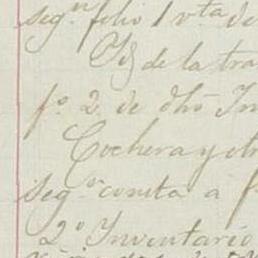 segn folio 1 vta de
Id de la tra
fo. 2. de dho In
Cochera y otr
segn consta a f
2o. Inventario